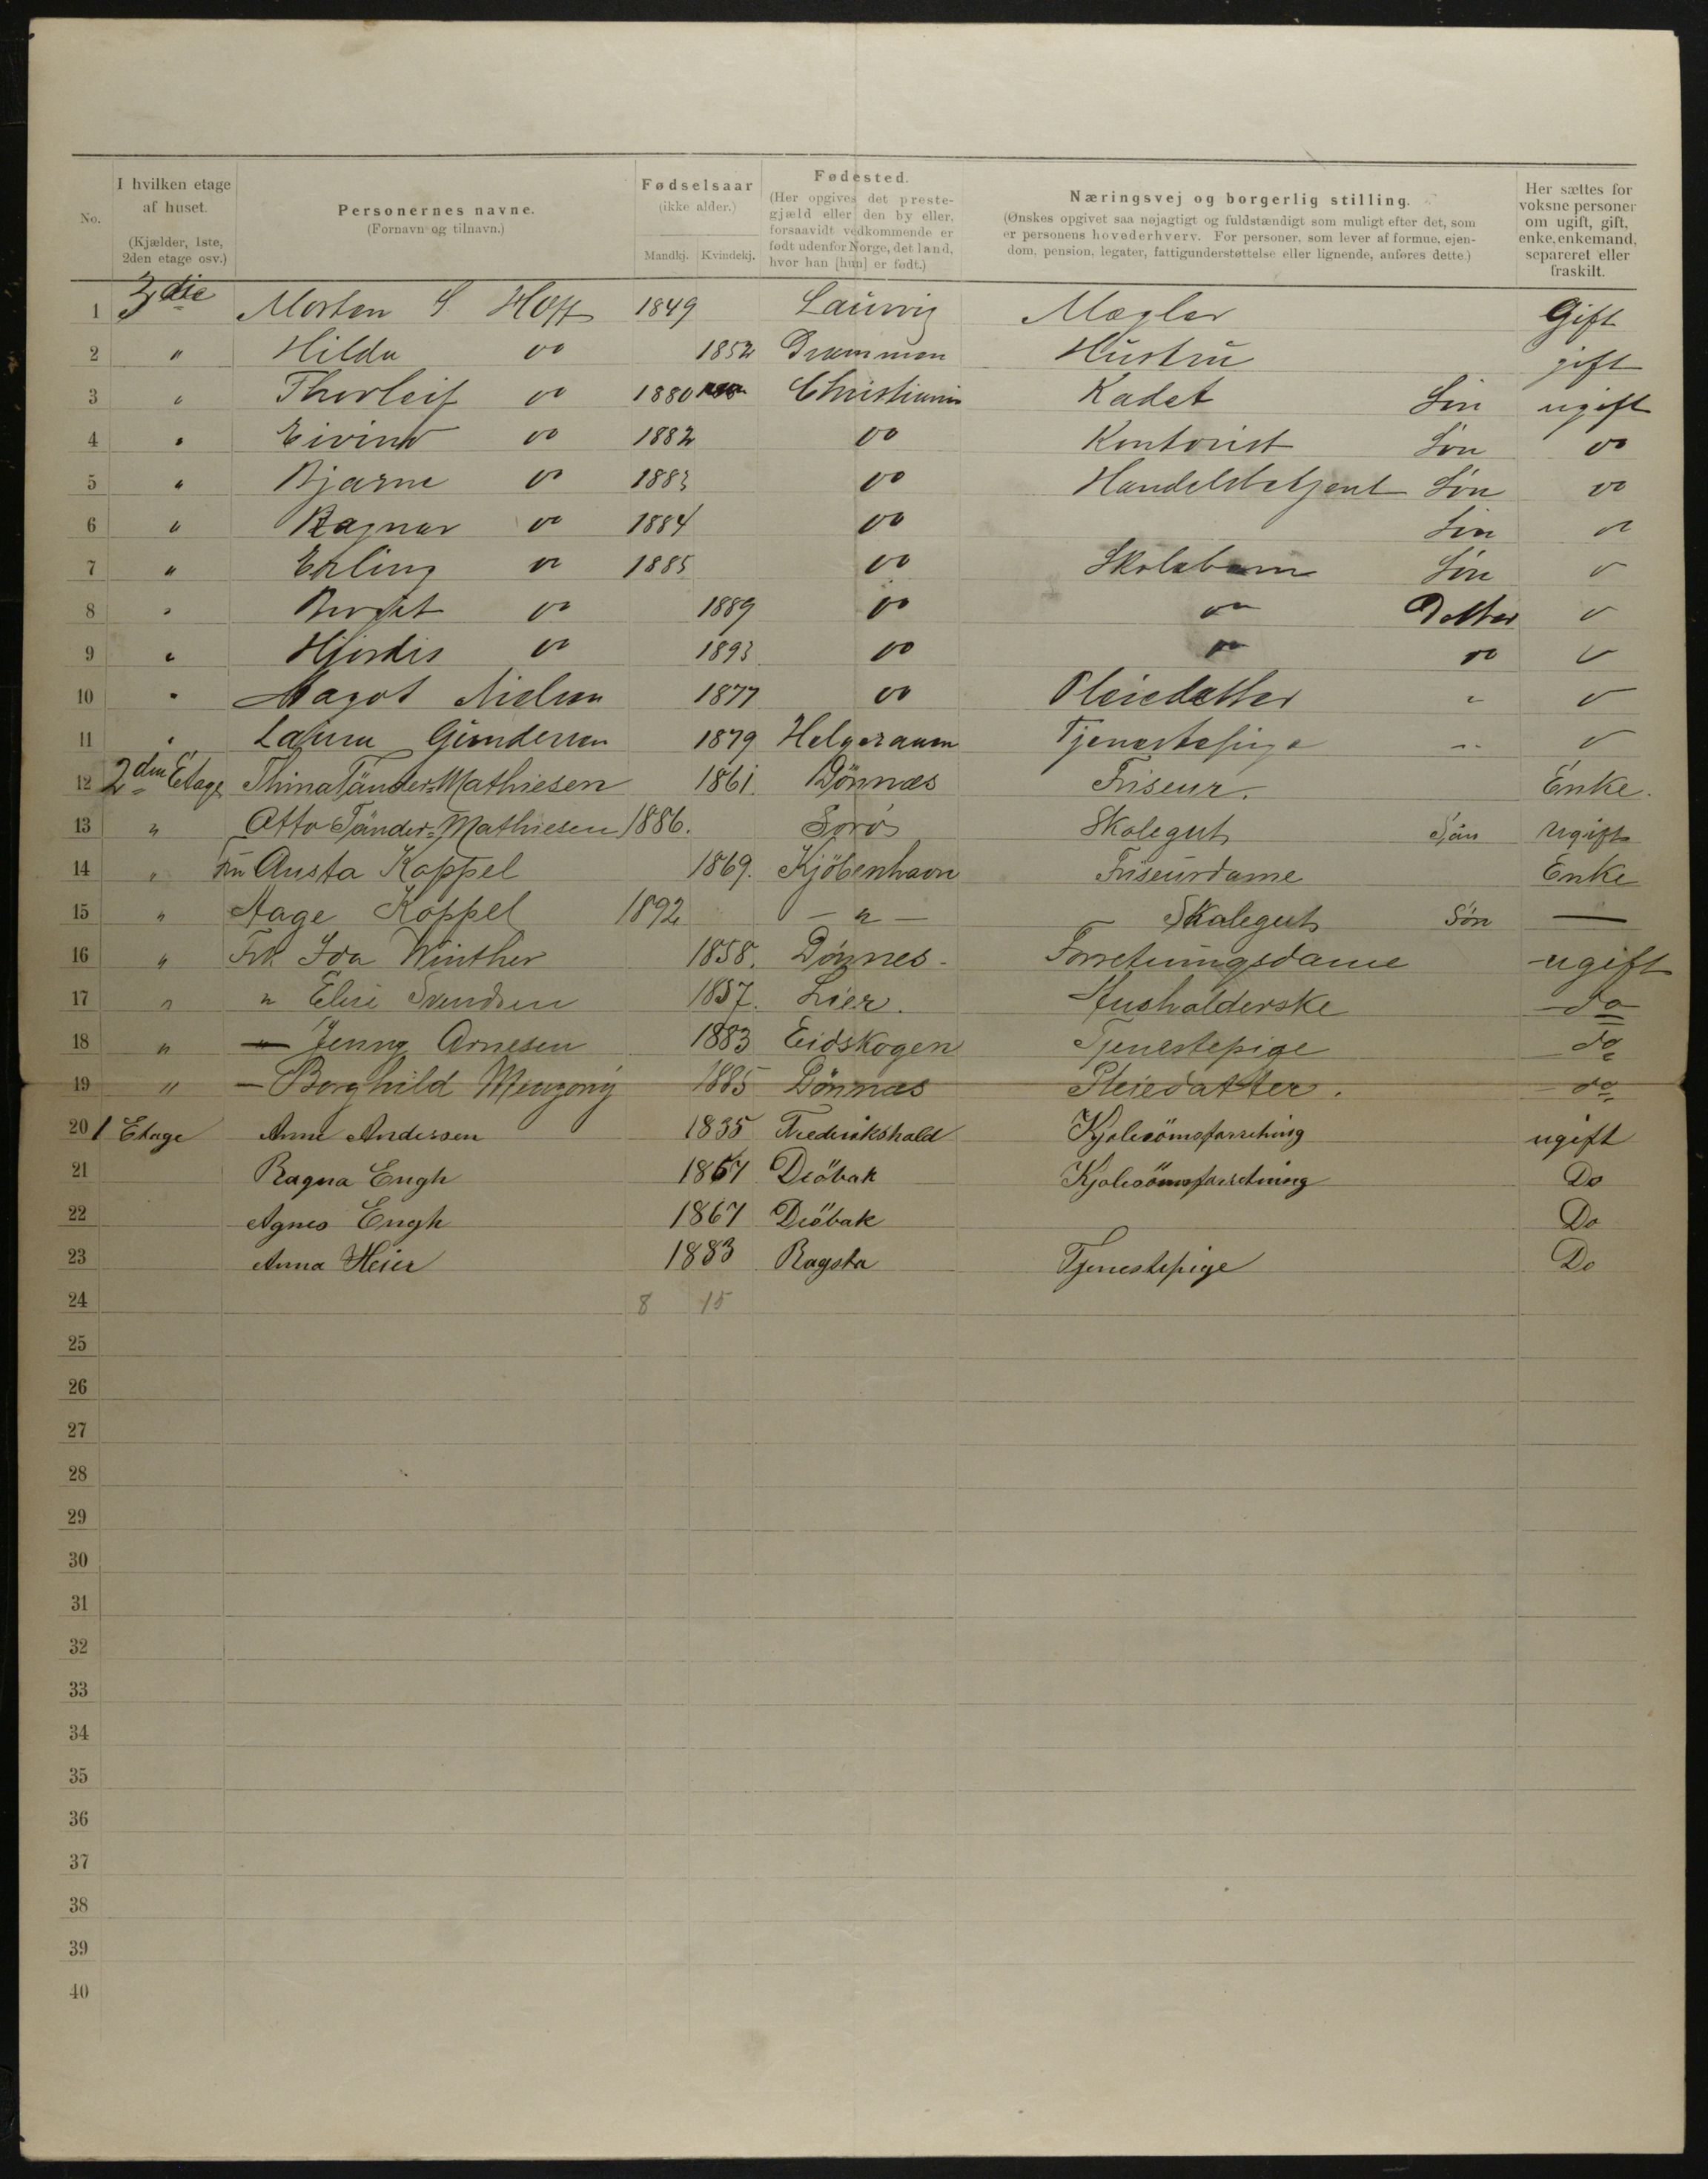 No.
I hvilken etage af huset. (Kjælder, 1ste, 2den etage osv.)
Personernes navne. (Fornavn og tilnavn.)
Fødselsaar (ikke alder.) Mandkj. Kvindekj.
Fødested. (Her opgives det prestegjæld eller den by eller, forsaavidt vedkommende er født udenfor Norge, det land, hvor han [hun] er født.)
Næringsvej og borgerlig stilling. (Ønskes opgivet saa nøjagtigt og fuldstændigt som muligt efter det, som er personens hovederhverv. For personer, som lever af formue, ejendom, pension, legater, fattigunderstøttelse eller lignende, anføres dette.)
Her sættes for voksne personer om ugift, gift, enke, enkemand, separeret eller fraskilt.
1 3die Morten S Hoff 1849 Laurvig Mægler Gift
2 " Hilda do 1852 Drammen Hustru gift
3 " Thorleif do 1880 Christiania Kadet Søn ugift
4 " Eivind do 1882 do Kontorist Søn do
5 " Bjarne do 1883 do Handelsbetjent Søn do
6 " Ragnar do 1884 do Søn do
7 " Erling do 1885 do Skolebarn Søn do
8 " Birgit do 1889 do do Datter do
9 " Hjørdis do 1893 do do do do
10 " Magot Nielsen 1877 do Pleiedatter " do
11 " Laura Gundersen 1879 Helgeraaen Tjenestepige " do
12 2den Etage Thina Tänder-Mathiesen 1861. Dönnæs Friseur. Enke.
13 " Otto Tänder-Mathiesen 1886. Sorö Skolegut Sön Ugift
14 " Fru Austa Koppel 1869. Kjöbenhavn Friseurdame Enke
15 " Aage Koppel 1892 — " — Skolegut Sön —
16 " Frk Ida Winther 1858. Dönnes Forretningsdame ugift
17 " " Elise Svendsen 1857. Lier. Husholderske do
18 " — Jenny Arnesen 1883 Eidskogen Tjenestepige do
19 " — Borghild 1885 Dönnæs Pleiedatter. do
20 1 Etage Anne Andersen 1835 Frederikshald Kjolesömsforretning ugift
21 Ragna Engh 1867 Dröbak Kjolesömsforretning Do
22 Agnes Engh 1867 Dröbak Do
23 Anna Heier 1883 Ragsta Tjenestepige Do
24 8 15
25
26
27
28
29
30
31
32
33
34
35
36
37
38
39
40